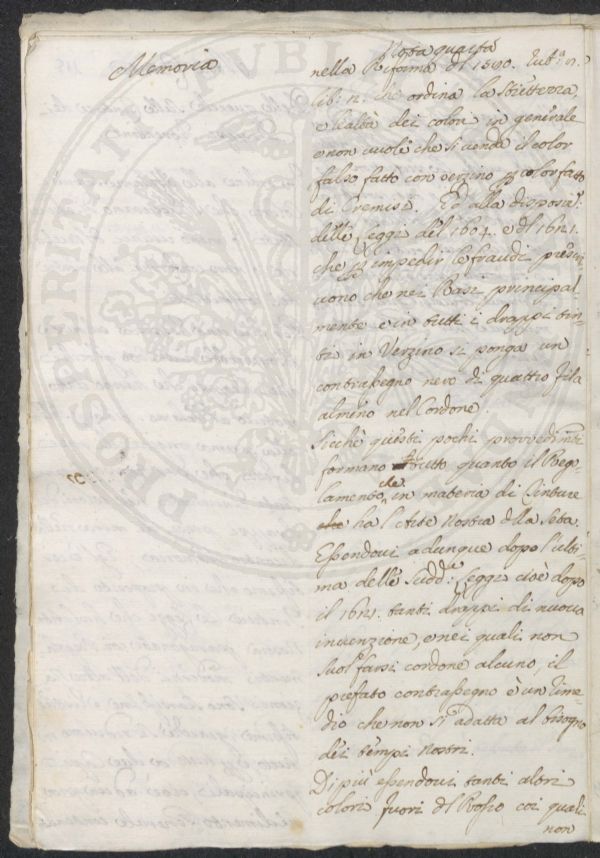 Memoria
Nota quarta
nella Riforma dl 1580. Rub.ª n.
lib: n. che ordina la Strettezza
e bealtà dei colori in generale
e non vuole che si venda il color
falso fatto con verzino p color fatto
di Cremisi. Ed alla disposiz:
delle Leggi del 1604. e dl 1621.
che p impedir le fraudi prescri
vono che nei Rasi principal-
mente e in tutti i drappi tin-
ti in Verzino si ponga un
contrasegno nero di quattro fila
almeno nel Cordone.
Sicchè questi pochi provvedim.ti
formano tutto quanto il Rego-
lamento, che in materia di Tinture
ha l'Arte nostra dlla Seta.
Essendovi adunque dopo l'ulti-
ma delle Sudd.e Leggi cioè dopo
il 1621. tanti drappi di nuova
invenzione, e nei quali non
suol farsi cordone alcuno, il
prefato contrassegno è un rime-
dio che non si adatta al bisogno
dei tempi nostri.
Di più essendovi tanti altri
colori fuori dl Rosso coi quali
non
PROSPERITATI PVBLICAE